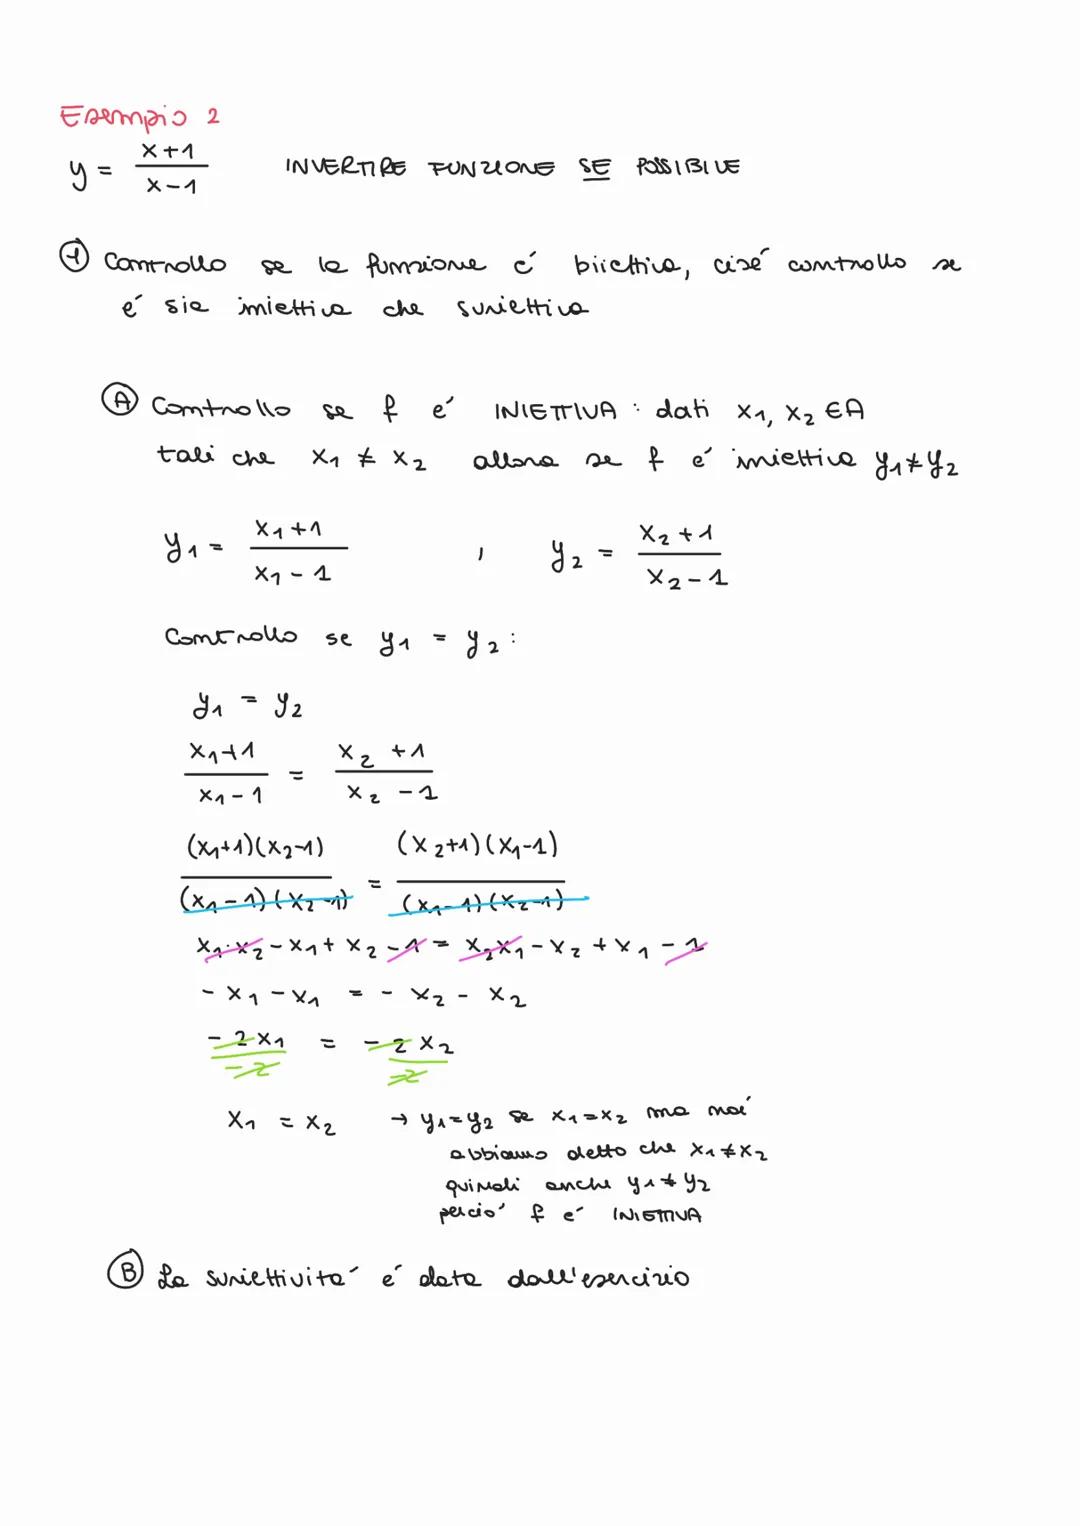 Esempio 2
y = x+1 / x-1 INVERTIRE FUNZIONE SE POSSIBILE
1 Controllo se la funzione é biiettiva, cioé controllo se
é sia iniettiva che suriettiva
A Controllo se f é INIETTIVA : dati x₁, x₂ ∈ A
tali che x₁ ≠ x₂ allora se f é iniettiva y₁≠y₂
y₁ = x₁+1 / x₁-1 , y₂ = x₂+1 / x₂-1
Controllo se y₁ = y₂ :
y₁ = y₂
x₁+1 / x₁-1 = x₂+1 / x₂-1
(x₁+1)(x₂-1) / (x₁-1)(x₂-1) = (x₂+1)(x₁-1) / (x₁-1)(x₂-1)
x₁·x₂ - x₁ + x₂ - 1 = x₂x₁ - x₂ + x₁ - 1
- x₁ - x₁ = - x₂ - x₂
-2x₁ / -2 = -2x₂ / -2
x₁ = x₂ → y₁=y₂ se x₁=x₂ ma noi
abbiamo detto che x₁≠x₂
quindi anche y₁≠y₂
perció f é INIETTIVA
B La suriettivitá é data dall'esercizio